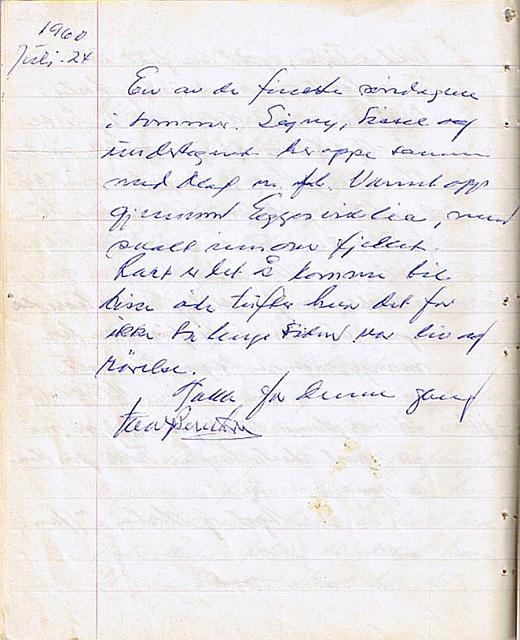 1960
Juli. 24
En av de fineste søndagene
i sommer. Signy, Sissel og
undertegnede her oppe sammen
med Olaf m. fl. Vannet opp
gjennom lia, med
snatt fjellet.
Rart er det å komme til
disse øde tufter hvor det for
ikke så lenge siden var liv og
rørelse.
Takk for denne gang